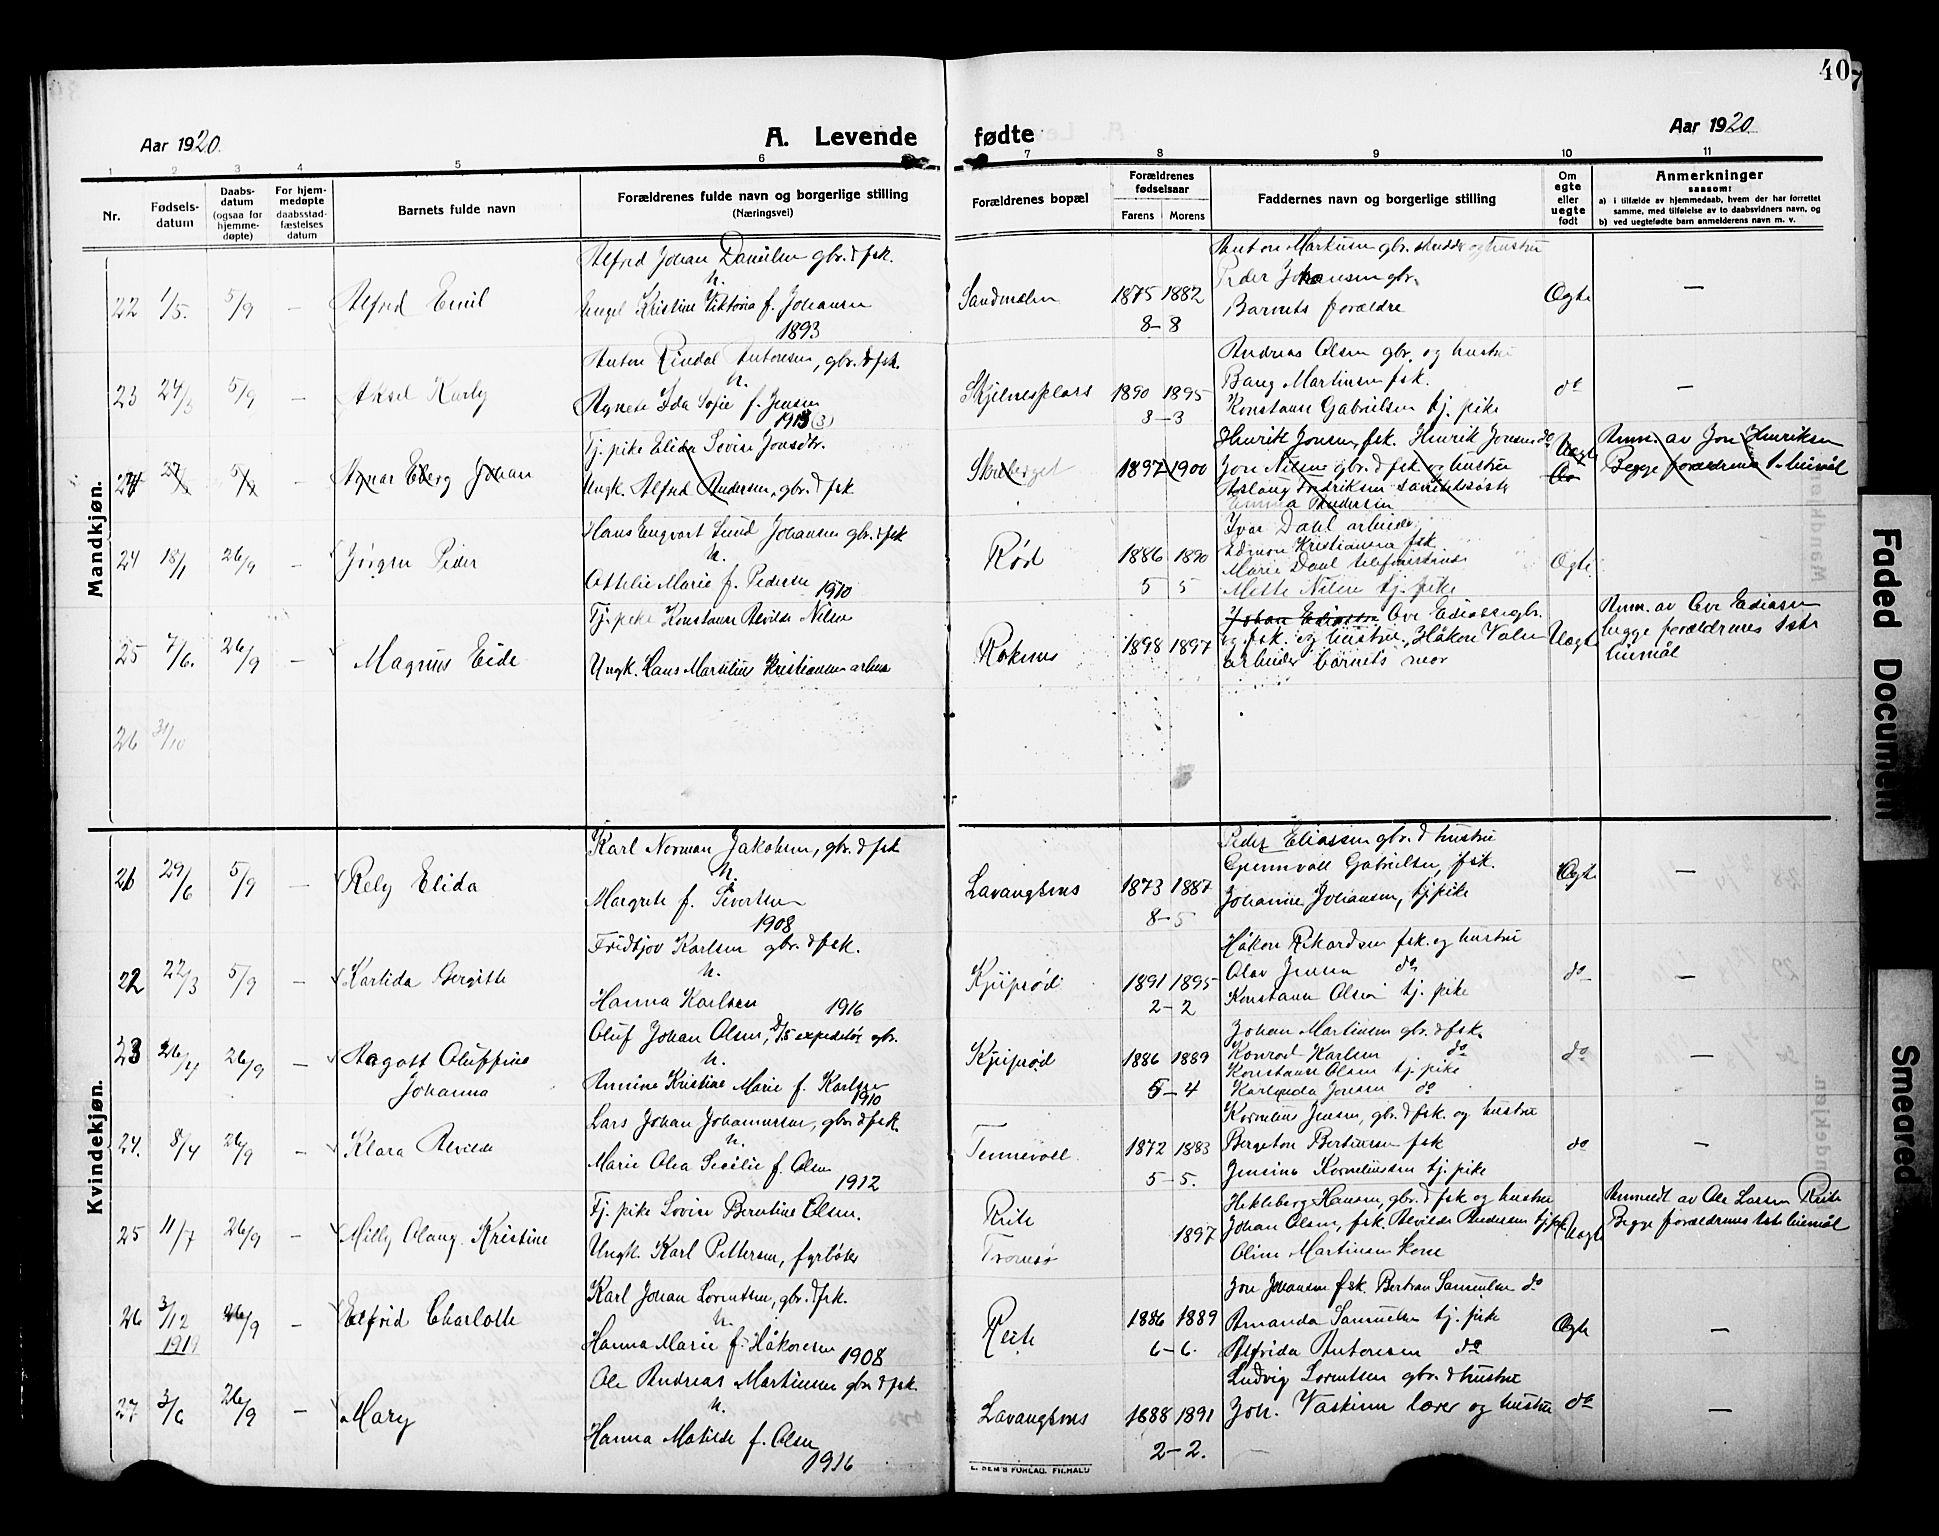 40
Aar 1920.
A. Levende
fødte
Aar 1920
1 2 3 4 5 6 7 8 9 10 11
Nr.
Fødsels-
datum
Daabs-
datum
(ogsaa for
hjemme-
døpte)
For hjem-
medøpte
daabsstad-
fæstelses
datum
Barnets fulde navn
Forældrenes fulde navn og borgerlige stilling
(Næringsvei)
Forældrenes bopæl
Forældrenes
fødselsaar
Farens Morens
Faddernes navn og borgerlige stilling
Om
egte
eller
uegte
født
Anmerkninger
saasom:
a) i tilfælde av hjemmedaab, hvem der har forrettet
samme, med tilføielse av to daabsvidners navn, og
b) ved uegtefødte barn anmelderens navn m. v.
Mandkjøn.
Alfred Johan Danielsen gbr. & fsk.
Anton Markussen gbr. og hustru
22 1/5. 5/9 — Alfred Emil
Kristine Viktoria f. Johansen
1893
Sandmolen 1875 1882
8 – 8
Peder Johansen gbr.
Barnets forældre
Ægte —
Anton Rindal Antonsen, gbr. & fsk.
Andreas Olsen gbr. og hustru
23 24/3 5/9 — Aksel Karly
Agnete Ida Sofie f. Jensen
1913 (3)
Skjelnesplass 1890 1895
3 – 3
Bang Martinsen fsk.
Konstanse Gabrielsen tj. pike
do —
Tj. pike Elida Lovise Jonsdtr.
Henrik Jonsen, fsk. Henrik Jonsen do
24 27/2 5/9 Agnar Eberg Johan
Ungk. Alfred Andersen, gbr. & fsk
1897 1900
Jon Nilsen gbr. & fsk og hustru
Aslaug Fredriksen
Emma Andersen
Uægte
Anm. av Jon Henriksen
Begge forældrenes 1ste leiemål
Hans Engvart Lund Johansen gbr. & fsk
24 18/1 26/9 — Jørgen Peder
Ottelie Marie f. Pedersen 1910
Rød 1886 1890
5 5
Ivar Dahl arbeider
Edmon Kristiansen fsk.
Marie Dahl
Mette Nilsen tj. pike
Ægte.
Tj. pike Konstanse Alvilde Nilsen
25 7/6. 26/9 — Magnus Eide
Ungk. Hans Martilius Kristiansen arbeider
Roknes 1898 1897
Johan Ediassen Ove Ediassen gbr.
og fsk. og hustru, Håkon Valen
arbeider barnets mor
Uægte
Anm. av Ove Ediassen
begge forældrenes 1ste
leiemål
26 31/10
Kvindekjøn.
Karl Norman Jakobsen, gbr. & fsk
21 29/6 5/9 — Rely Elida
Margrete f. Sivertsen
1908
Lavangsnes 1873 1887
8 – 5
Peder Eliassen gbr. & hustru
Gabrielsen, fsk.
Johanne Johansen, tj. pike
Ægte —
Fridtjov Karlsen gbr. & fsk.
22 22/3 5/9 — Karlida Bergitte
Hanna Karlsen 1916
Kjeiprød 1891 1895
2 – 2
Håkon Rikardsen fsk. og hustru
Olav Jensen do
Konstanse Olsen tj. pike
do —
Oluf Johan Olsen, D/S expeditør gbr.
23 26/4 26/9 — Aagott Oluffine
Johanna
Annine Kristine Marie f. Karlsen
1910
Kjeiprød 1886 1889
5 – 4
Johan Martinsen gbr. & fsk
Konrad Karlsen do
Konstanse Olsen tj. pike
Karlanda Jensen do
do —
Lars Johan Johannessen, gbr. & fsk.
24. 8/4 26/9 — Klara Alvilde
Marie Olea Secilie f. Olsen
1912
Tennevoll 1872 1883
5 – 5.
Kornelius Jensen, gbr. & fsk. og hustru
Bergeton Bertinsen fsk
Jensine Korneliussen tj. pike
do —
Tj. pike Lovise Berntine Olsen.
25 11/7 26/9 — Milly Olaug Kristine
Ungk. Karl Pettersen, fyrbøter
Reite
Tromsø
1897
Hekleberg Hansen, gbr. & fsk og hustru
Johan Olsen, fsk. Alvilde Andersen tj. pk.
Oline Martinsen kone
Uægte
Anmeldt av Ole Larsen Reite
Begge forældrenes 1ste leiemål
Karl Johan Lorentsen, gbr. & fsk.
26 3/12 1919 26/9 — Elfrid Charlotte
Hanna Marie f. Håkonsen 1908
Reite 1886 1889
6 – 6.
Jon Johansen fsk. Bertran Samuelsen do
Amanda Samuelsen tj. pike
Alfrida Antonsen do
Ægte —
Ole Andreas Martinsen gbr. & fsk.
27 3/6 26/9 — Mary
Hanna Matilde f. Olsen
1916
Lavangsnes 1888 1891
2 – 2.
Ludvig Lorentsen gbr. & hustru
Joh. Vaskinn lærer og hustru
do —
E. SEM'S FORLAG, F.HALD
Faded Document
Smeared